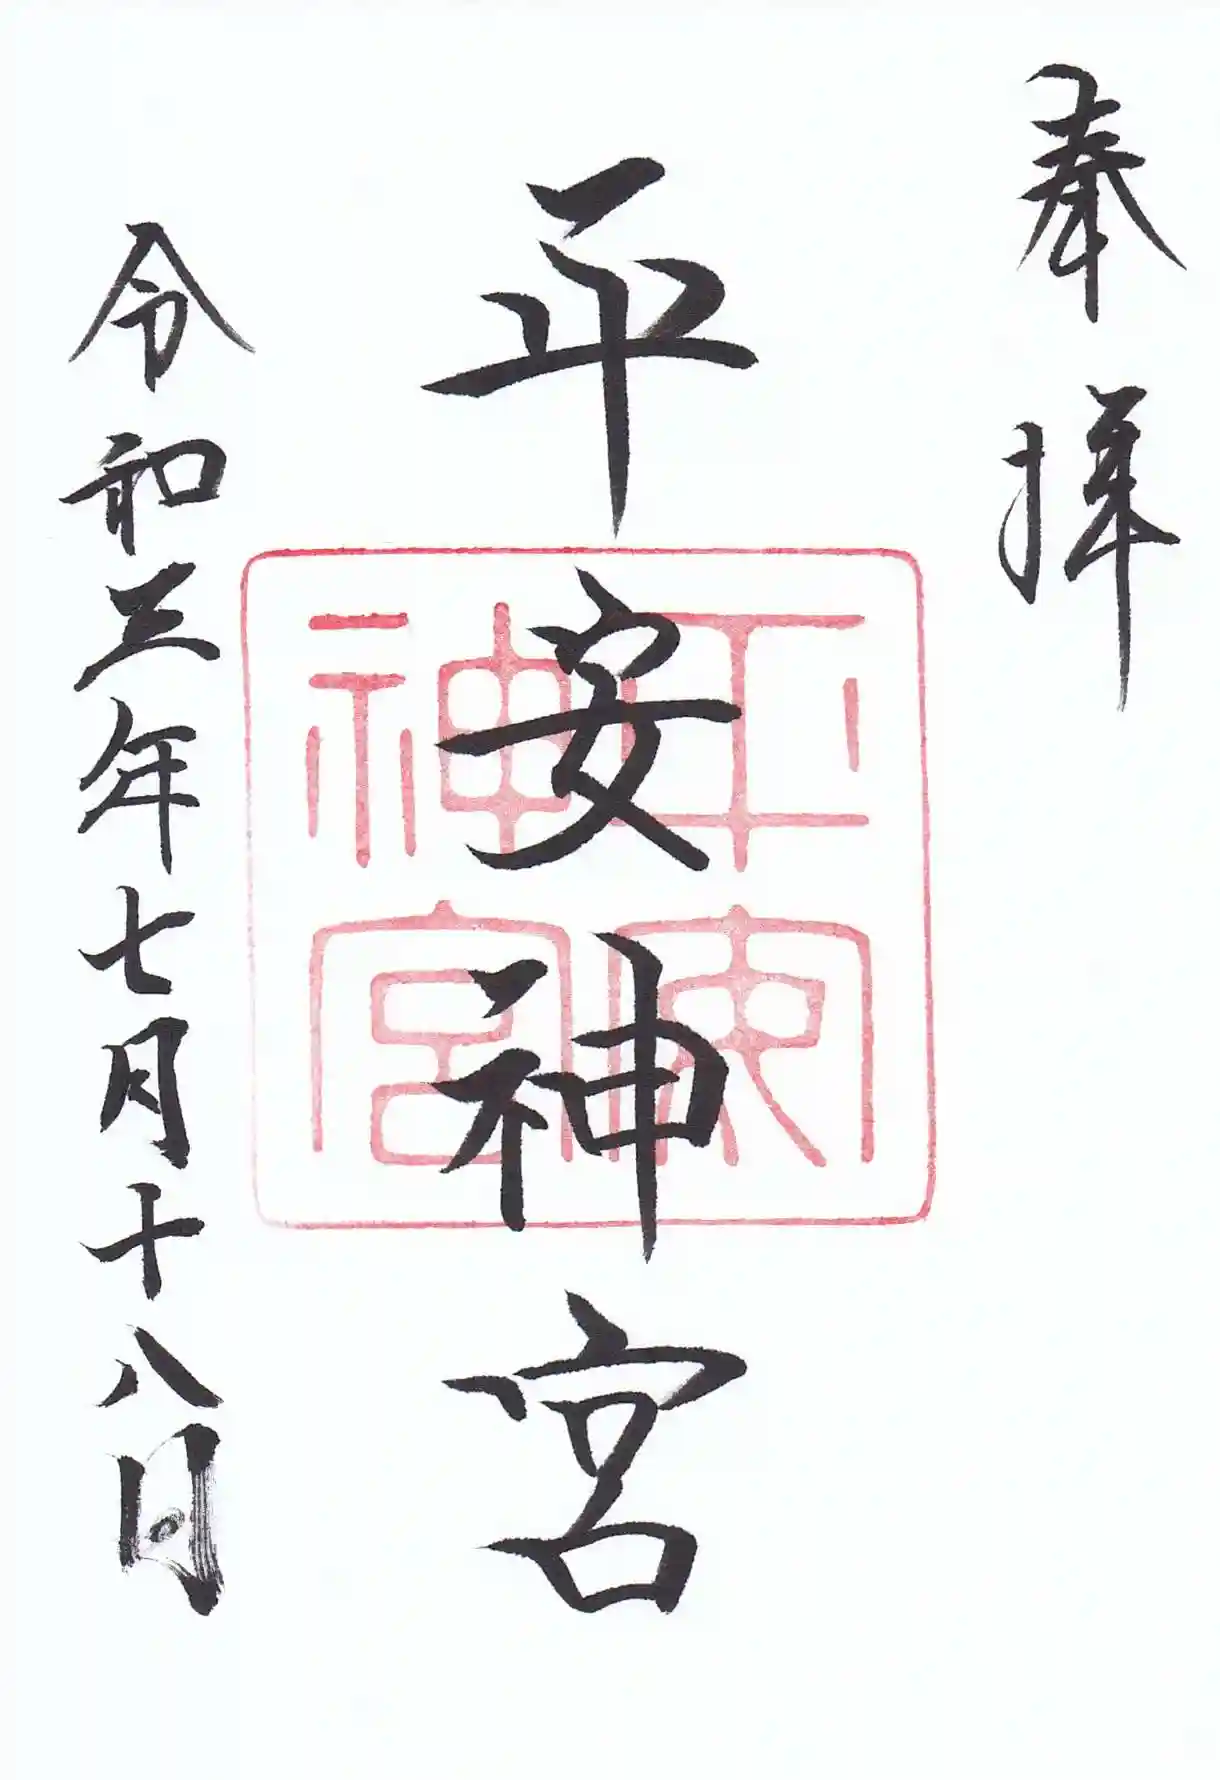 奉拝
平安神宮
平安
神宮
令和三年七月十八日